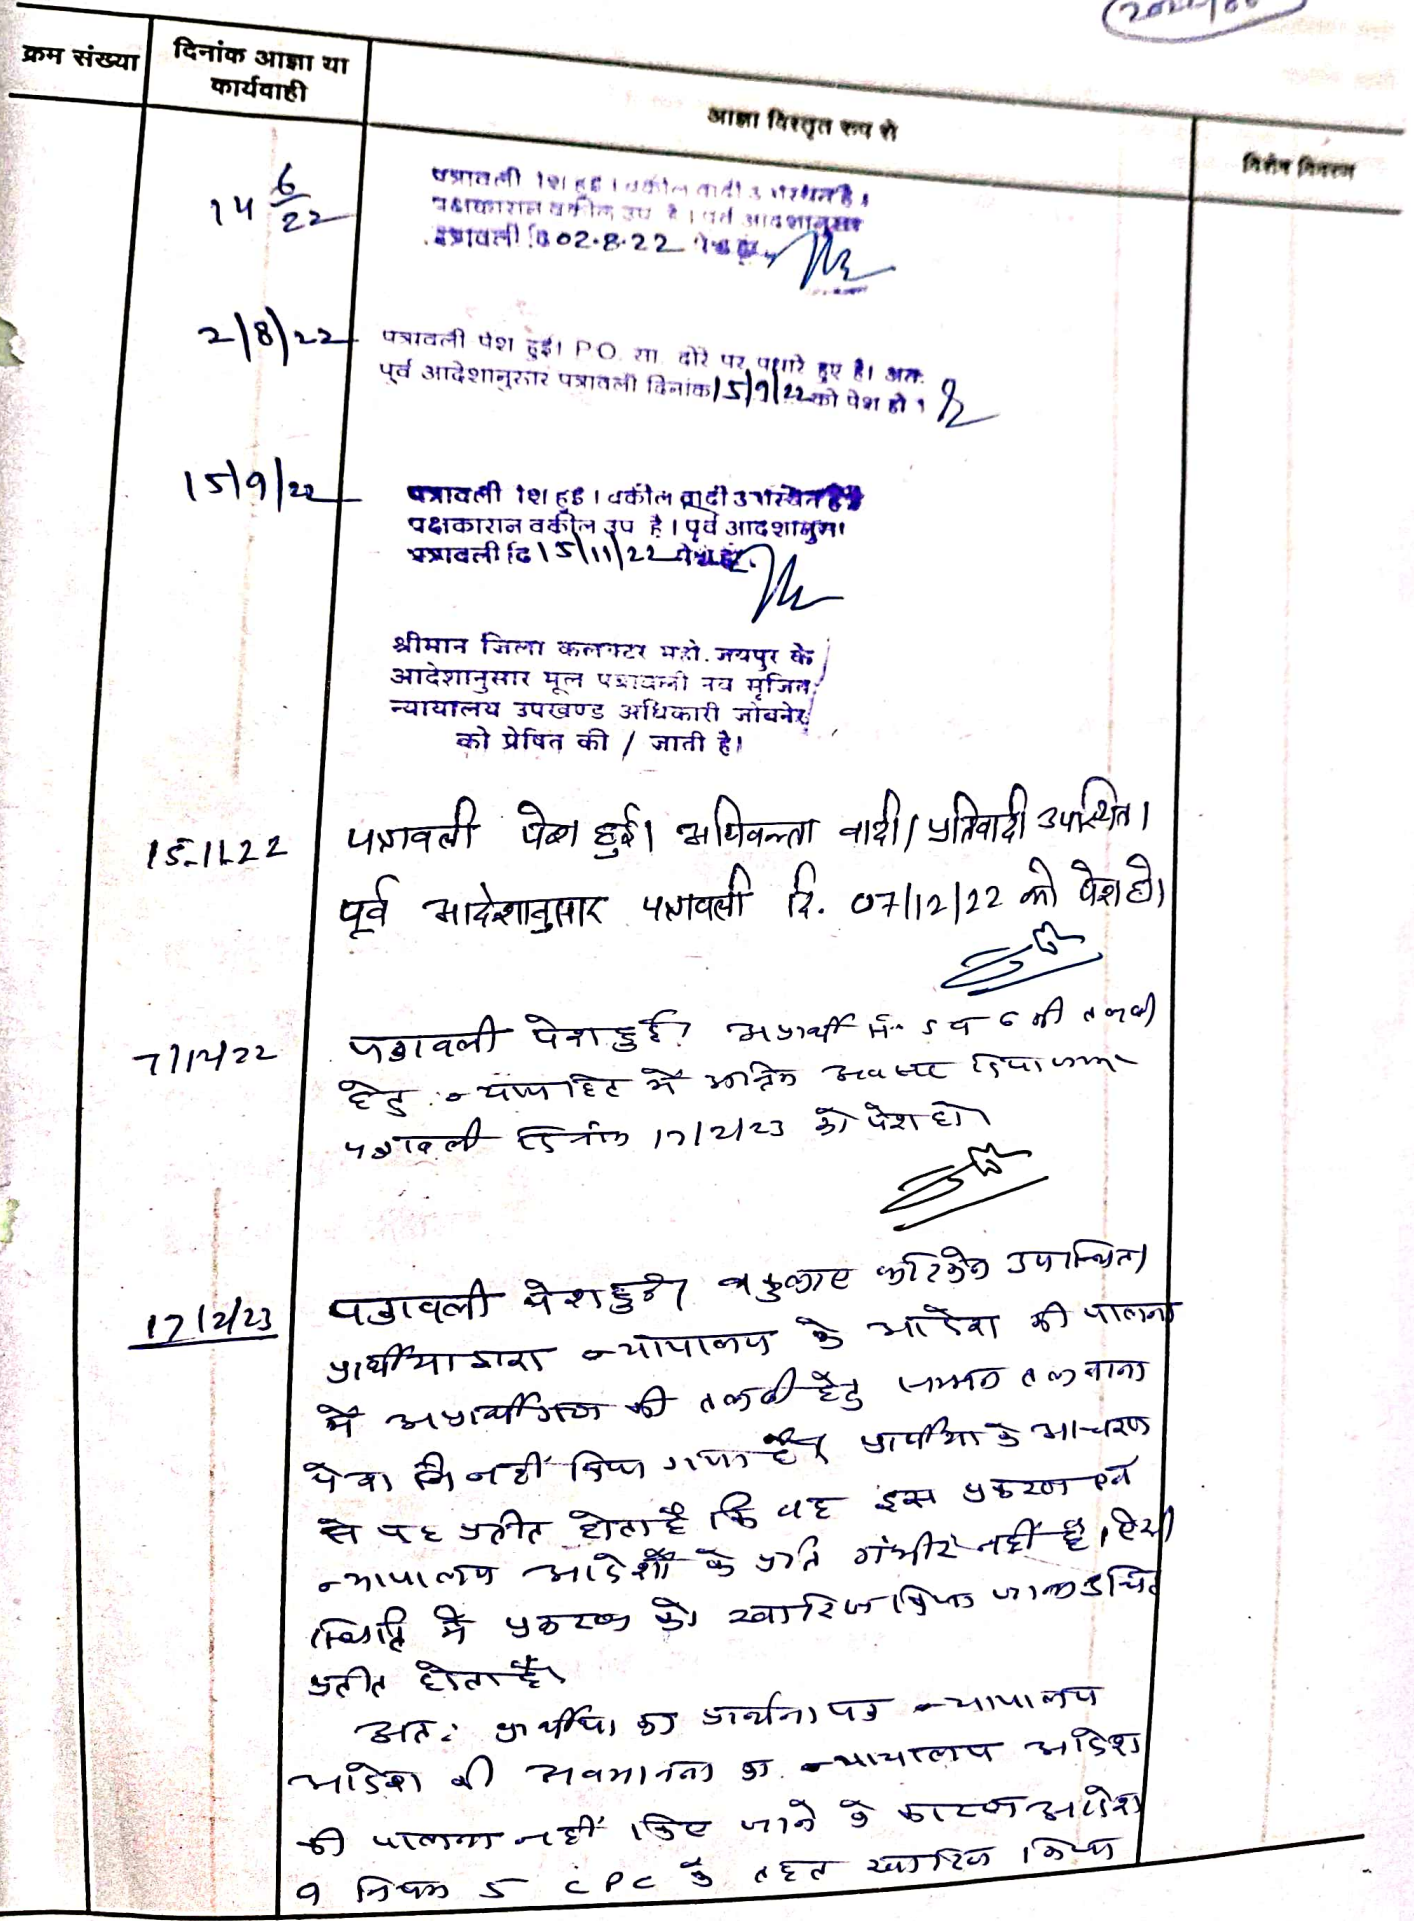 क्रम संख्या
दिनांक आज्ञा या
कार्यवाही
आज्ञा विस्तृत रूप से
विशेष विवरण
14 6/22
पत्रावली पेश हुई । वकील वादी उपस्थित है ।
पक्षकारान वकील उप है । पूर्व आदशानुसार
पत्रावली दि 02.8.22
2/8/22
पत्रावली पेश हुई। P.O. सा. दौरे पर पधारे हुए है। अतः
पूर्व आदेशानुसार पत्रावली दिनांक 15/9/22 को पेश हो ।
15/9/22
पत्रावली पेश हुई । वकील वादी उपस्थित है
पक्षकारान वकील उप है । पूर्व आदशानुसा
पत्रावली दि 15/11/22
श्रीमान जिला कलक्टर महो. जयपुर के
आदेशानुसार मूल पत्रावली नव सृजित
न्यायालय उपखण्ड अधिकारी जोबनेर
को प्रेषित की / जाती है।
15.11.22
पत्रावली पेश हुई। अधिवक्ता वादी/प्रतिवादी उपस्थित।
पूर्व आदेशानुसार पत्रावली दि. 07/12/22 को पेश हो।
7/12/22
पत्रावली पेश हुई। अप्रार्थी सं. 5 व 6 की तलबी
हेतु न्यायहित में अन्तिम अवसर दिया जाता
पत्रावली दिनांक 17/2/23 को पेश हो।
17/2/23
पत्रावली पेश हुई। वकुलाए फरिकेन उपस्थित।
प्रार्थीया द्वारा न्यायालय के आदेश की पालना
में अप्रार्थीगण की तलबी हेतु सम्मन तलवाना
पेश नहीं किया गया है। प्रार्थीया के आचरण
से यह प्रतीत होता है कि वह इस प्रकरण एवं
न्यायालय आदेशों के प्रति गंभीर नहीं है, ऐसी
स्थिति में प्रकरण को खारिज किया जाना उचित
प्रतीत होता है।
अतः प्रार्थीया का प्रार्थना पत्र न्यायालय
आदेश की अवमानना व न्यायालय आदेश
की पालना नहीं किए जाने के कारण आदेश
9 नियम 5 CPC के तहत खारिज किया